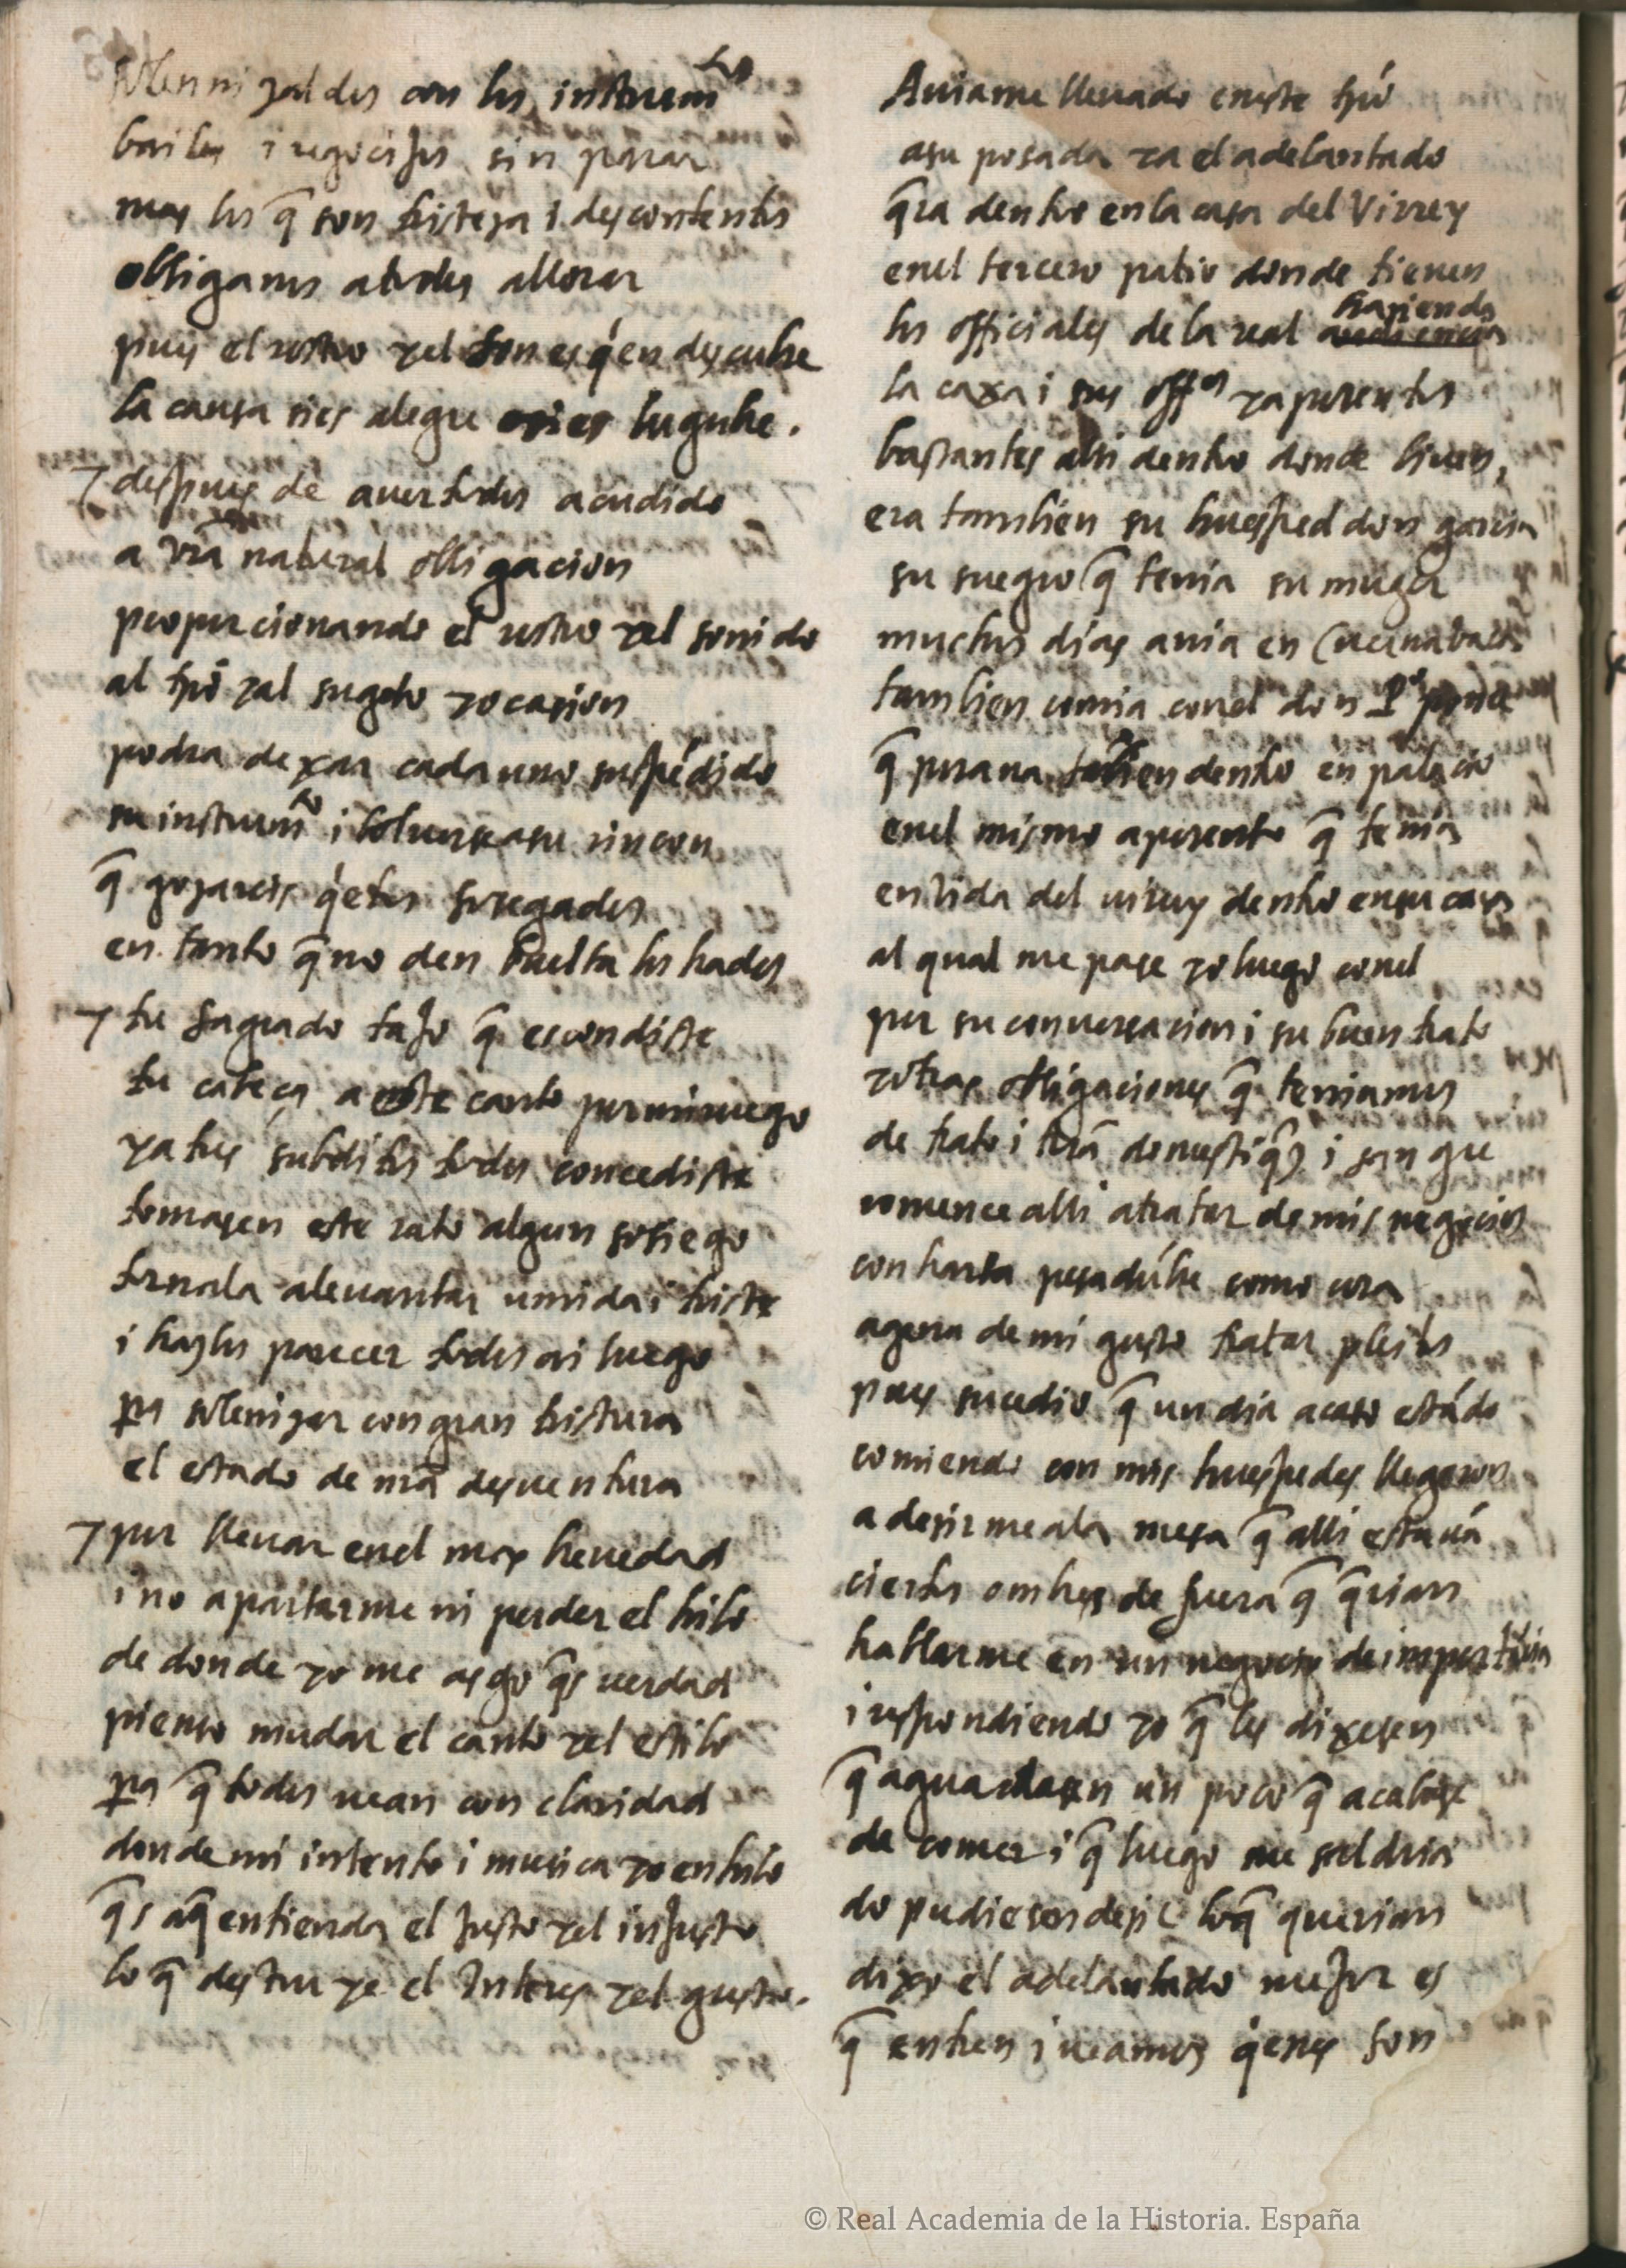 solennizaldos con los instrumtos
bailes i regocijos sin parar
mas los q̃ son tristeza i descontentos
obligamos a todos a llorar
pues el rostro y el son es q́en descubre
la causa si es alegre o si es lugubre.
despues de auer todos acudido
a vr̃a natural obligacion
proporcionando el rostro y el sonido
al tpõ y al sugeto y ocasion
podra dexar cada uno suspẽdido
su instrumto i boluerse a su rincon
q̃ gozareis q́etos sosegados
en tanto q̃ no den buelta los hados
tu sagrado tajo q̃ escondiste
tu cabeça a este canto por mi ruego
y a tus subditos todos concediste
tomasen este rato algun sosiego
tornala a leuantar umida i triste
i hazlos parecer todos oi luego
pa solenizar con gran tristura
el estado de nr̃a desuentura
por lleuar en el mas breuedad
i no apartarme ni perder el hilo
de donde yo me asgo q̃s uerdad
pienso mudar el canto y el estilo
pa q̃ todos uean con claridad
donde mi intento i musica yo entablo
q̃s a q̃ entienda el justo y el injusto
lo q̃ destruye el interes y el gusto.
Auiame lleuado eneste tpõ
asu posada ya el adelantado
q̃ra dentro en la casa del Virrey
enel tercero patio donde tienen
los officiales de la real audiencia hazienda
la caxa i sus offos y aposentos
bastantes alli dentro donde biuen,
era tambien su huesped don garcia
su suegro q̃ tenia su muger
muchos dias auia en Cuernabaca
tambien comia conel don Po ponce
q̃ posaua tambien dentro en palacio
enel mismo aposento q̃ tenia
en bida del uirrey dentro ensu casa
al qual me pase yo luego conel
por su conuersacion i su buen trato
y otras obligaciones q̃ teniamos
de trato i trr̃a domestiq̃z i sangre
comence alli atratar de mis negocios
con harta pesadũbre como cosa
agena de mi gusto tratar pleitos
pues sucedio q̃ un dia acaso estãdo
comiendo con mis huespedes llegaron
a dezirme ala mesa q̃ alli estauã
ciertos ombres de fuera q̃ q̃rian
hablarme en un negocio de importãcia
i respondiendo yo q̃ les dixesen
q̃ aguardasen un poco q̃ acabase
de comer i q̃ luego me saldria
do pudiesen dezir lo q̃ querian
dixo el adelantado mejor es
q̃ entren i ueamos q́enes son
© Real Academia de la Historia. España